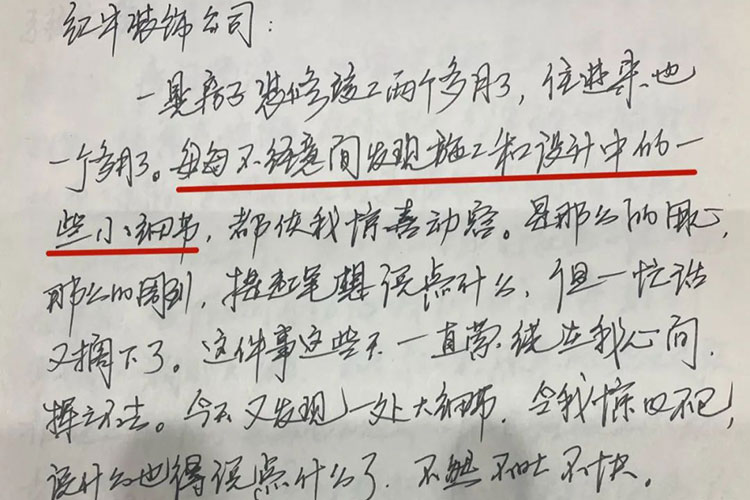 红牛装饰公司:
一晃房子装修竣工两个多月了,住进来也
一个多月了。每每不经意间发现施工和设计中的一
些小细节,都使我惊喜动容。是那么的用心,
那么的周到,提起笔想说点什么,但一忙活
又搁下了。这件事这些天一直萦绕在我心间,
挥之不去。今天又发现一处大细节,令我惊叹不已,
说什么也得说点什么了,不然不吐不快。